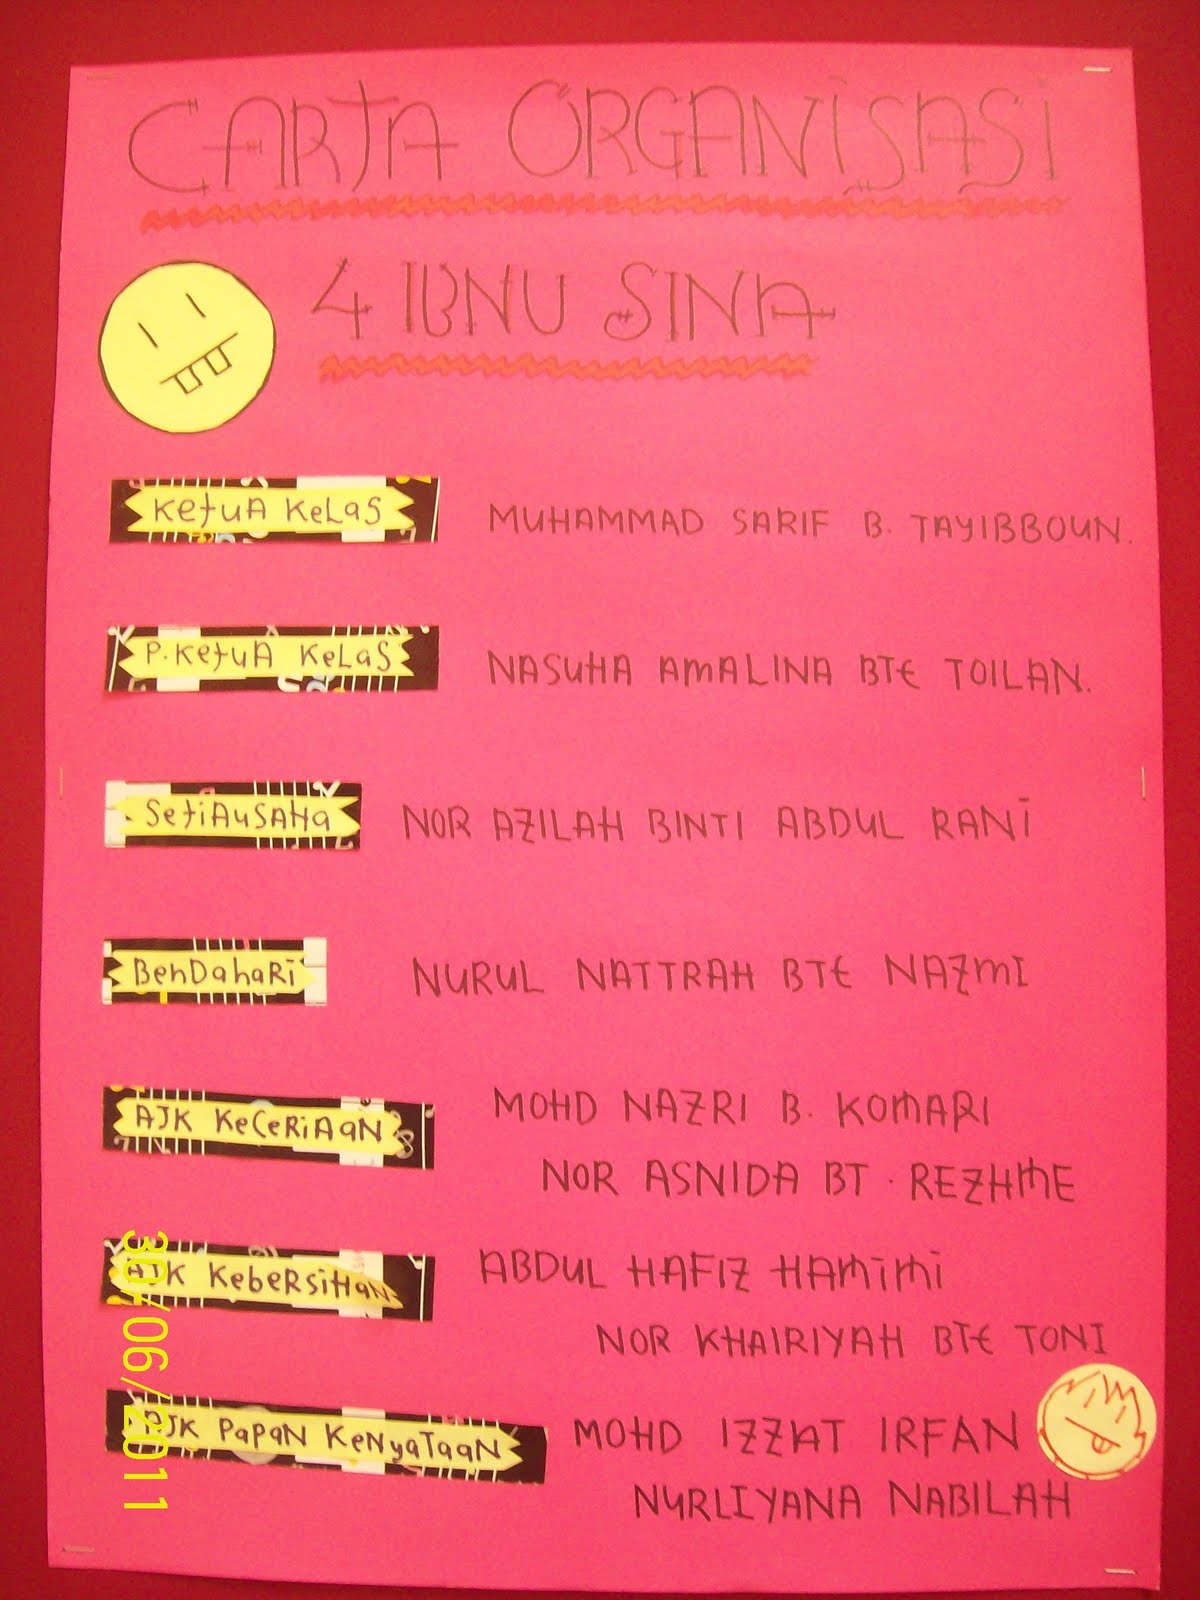 CARTA ORGANISASI
4 IBNU SINA
KetuA KeLaS
MUHAMMAD SARIF B. TAYIBBOUN.
P. KetuA KeLaS
NASUHA AMALINA BTE TOILAN.
SetiAuSAHa
NOR AZILAH BINTI ABDUL RANI
BenDahaRi
NURUL NATTRAH BTE NAZMI
AJK KeCeRiAaN
MOHD NAZRI B. KOMARI
NOR ASNIDA BT. REZHME
AJK KebeRSiHaN
ABDUL HAFIZ HAMIMI
NOR KHAIRIYAH BTE TONI
AJK PaPaN KeNyaTaaN
MOHD IZZAT IRFAN
NURLIYANA NABILAH
30/06/2011